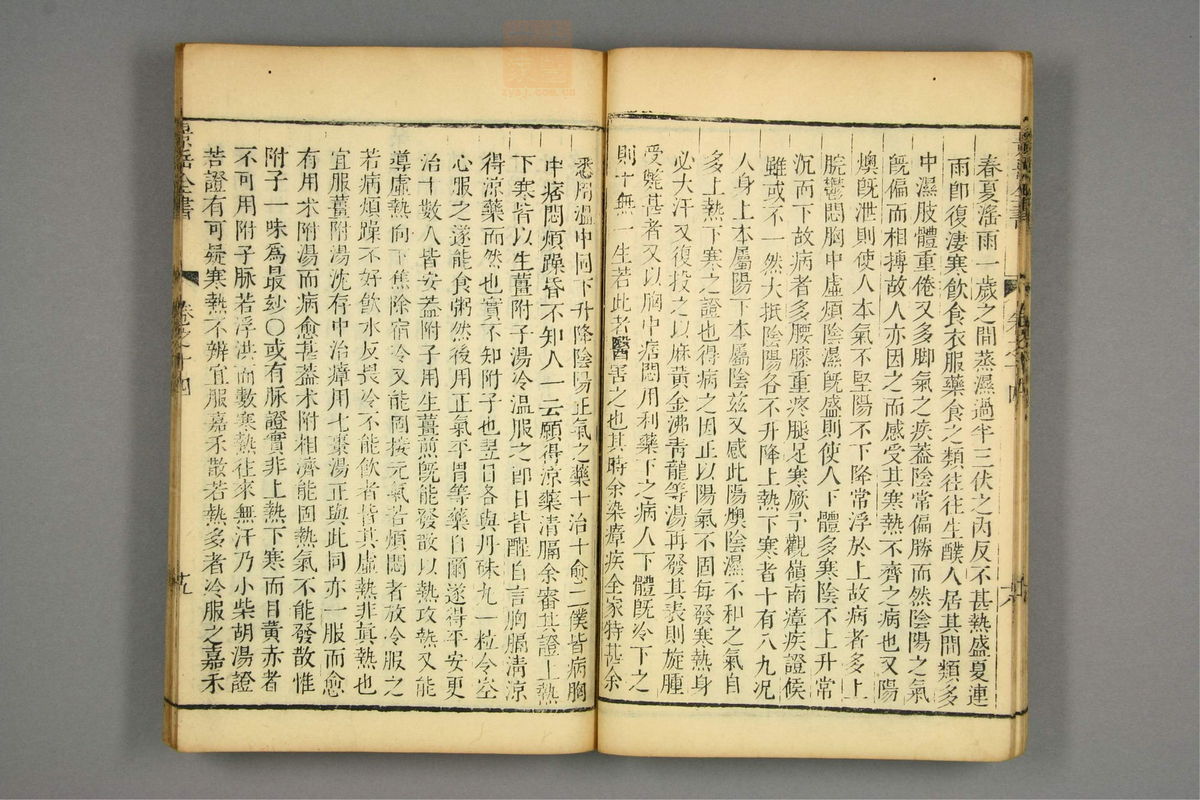 春夏滛雨一歲之間蒸濕過半三伏之內反不甚熱盛夏連
雨卽復淒寒飲食衣服藥食之類往往生醭人居其間類多
中濕肢體重倦又多脚氣之疾蓋陰常偏勝而然陰陽之氣
旣偏而相搏故人亦因之而感受其寒熱不齊之病也又陽
燠旣泄則使人本氣不堅陽不下降常浮於上故病者多上
脘鬱悶胸中虛煩陰濕旣盛則使人下體多寒陰不上升常
沉而下故病者多腰膝重疼腿足寒厥予觀嶺南瘴疾證候
雖或不一然大抵陰陽各不升降上熱下寒者十有八九況
人身上本屬陽下本屬陰兹又感此陽燠陰濕不和之氣自
多上熱下寒之證也得病之因正以陽氣不固每發寒熱身
必大汗又復投之以麻黃金沸青龍等湯再發其表則旋踵
受斃甚者又以胸中痞悶用利藥下之病人下體旣冷下之
則十無一生若此者醫害之也其時余染瘴疾全家特甚余
悉用溫中固下升降陰陽正氣之藥十治十愈二僕皆病胸
中痞悶煩躁昏不知人一云願得涼藥清膈余審其證上熱
下寒皆以生薑附子湯冷溫服之卽日皆醒自言胸膈清涼
得涼藥而然也實不知附子也翌日各與丹砞丸一粒令空
心服之遂能食粥然後用正氣平胃等藥自爾遂得平安更
治十數人皆安蓋附子用生薑煎旣能發散以熱攻熱又能
導虛熱向下焦除宿冷又能固接元氣若煩悶者放冷服之
若病煩躁不好飲水反畏冷不能飲者皆其虛熱非眞熱也
宜服薑附湯沈存中治瘴用七棗湯正與此同亦一服而愈
有用朮附湯而病愈甚蓋朮附相濟能固熱氣不能發散惟
附子一味爲最玅〇或有脉證實非上熱下寒而目黃赤者
不可用附子脉若浮洪而數寒熱往來無汗乃小柴胡湯證
若證有可疑寒熱不辨宜服嘉禾散若熱多者冷服之嘉禾
景岳全書
卷之十四
十九
zysj.com.cn